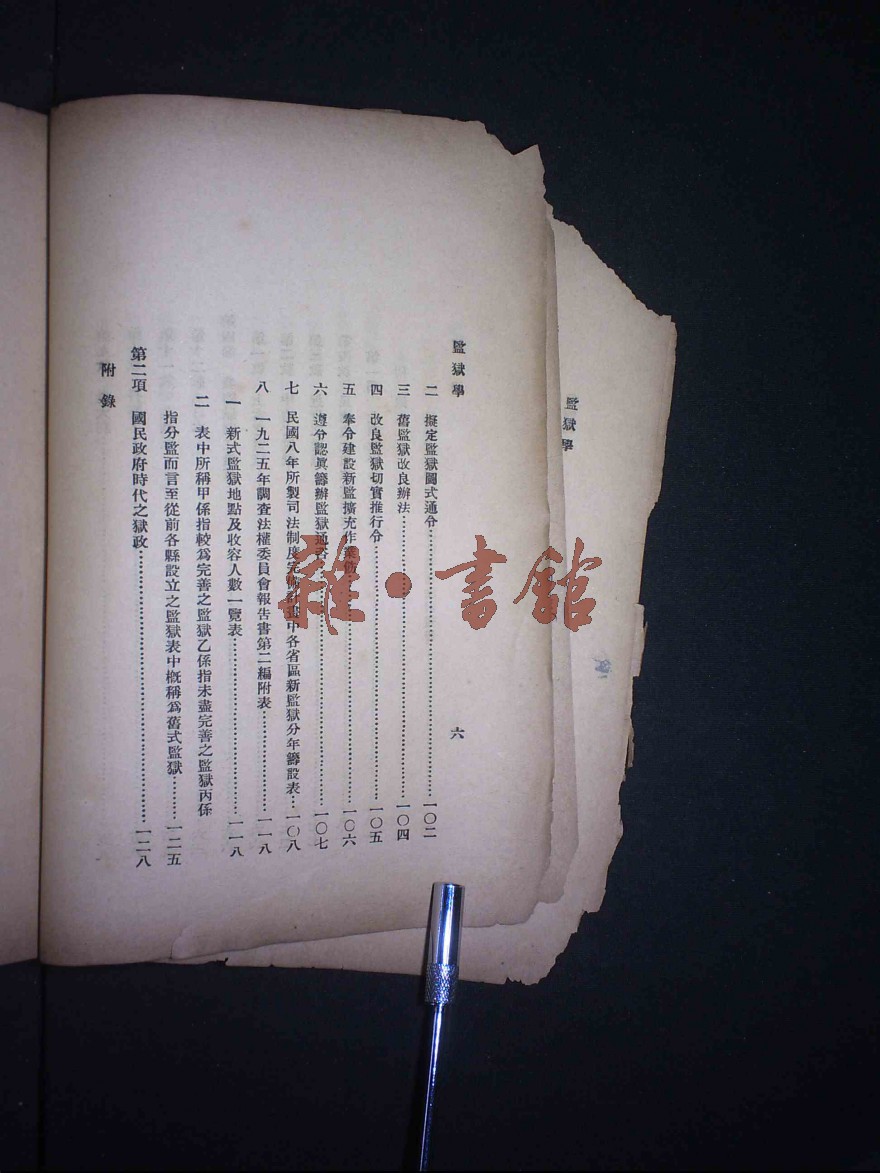 監獄學
六
二 擬定監獄圖式通令……一〇二
三 舊監獄改良辦法……一〇四
四 改良監獄切實推行令……一〇五
五 奉令建設新監擴充作業……一〇六
六 遵令認眞籌辦監獄通……一〇七
七 民國八年所製司法制度完中各省區新監獄分年籌設表…一〇八
八 一九二五年調查法權委員會報吿書第二編附表……一一八
一 新式監獄地點及收容人數一覽表……一一八
二 表中所稱甲係指較爲完善之監獄乙係指未盡完善之監獄丙係
指分監而言至從前各縣設立之監獄表中槪稱爲舊式監獄……一二五
第二項 國民政府時代之獄政……一二八
附錄
監獄學
雜·書館